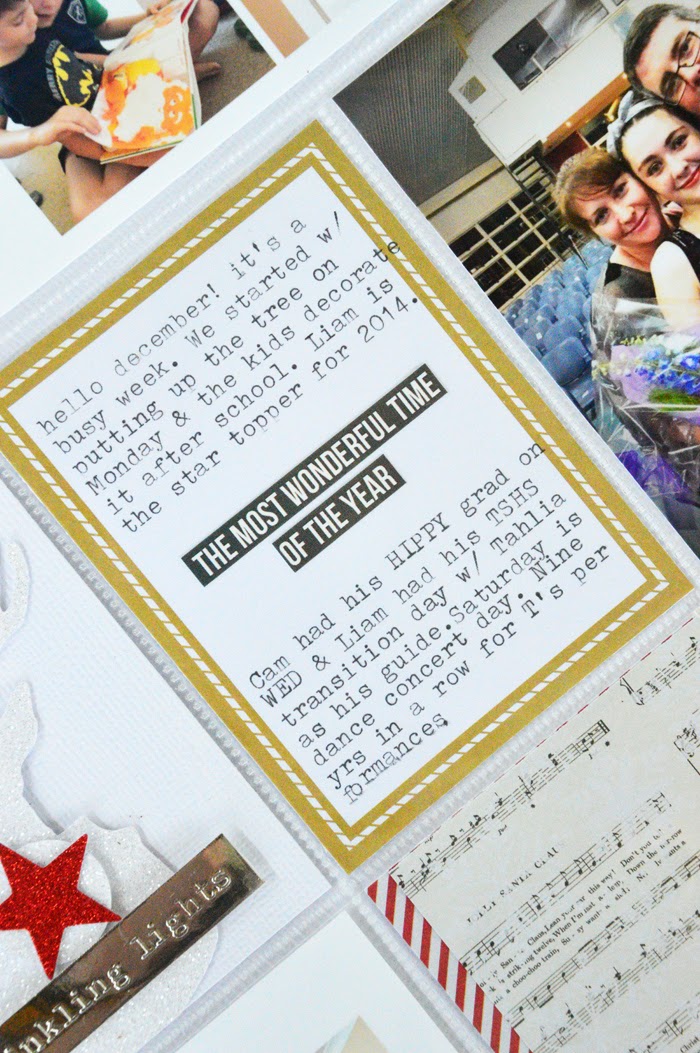 hello december! it's a
busy week. We started w/
putting up the tree on
Monday & the kids decorate
it after school. Liam is
the star topper for 2014.
THE MOST WONDERFUL TIME
OF THE YEAR
Cam had his HIPPY grad on
WED & Liam had his TSHS
transition day w/ Tahlia
as his guide.Saturday is
dance concert day. Nine
yrs in a row for T's per
formances.
nkling lights
Claus, Lean your ear this way! Don't you
twelve, When I'm Down the
a choo-choo train,